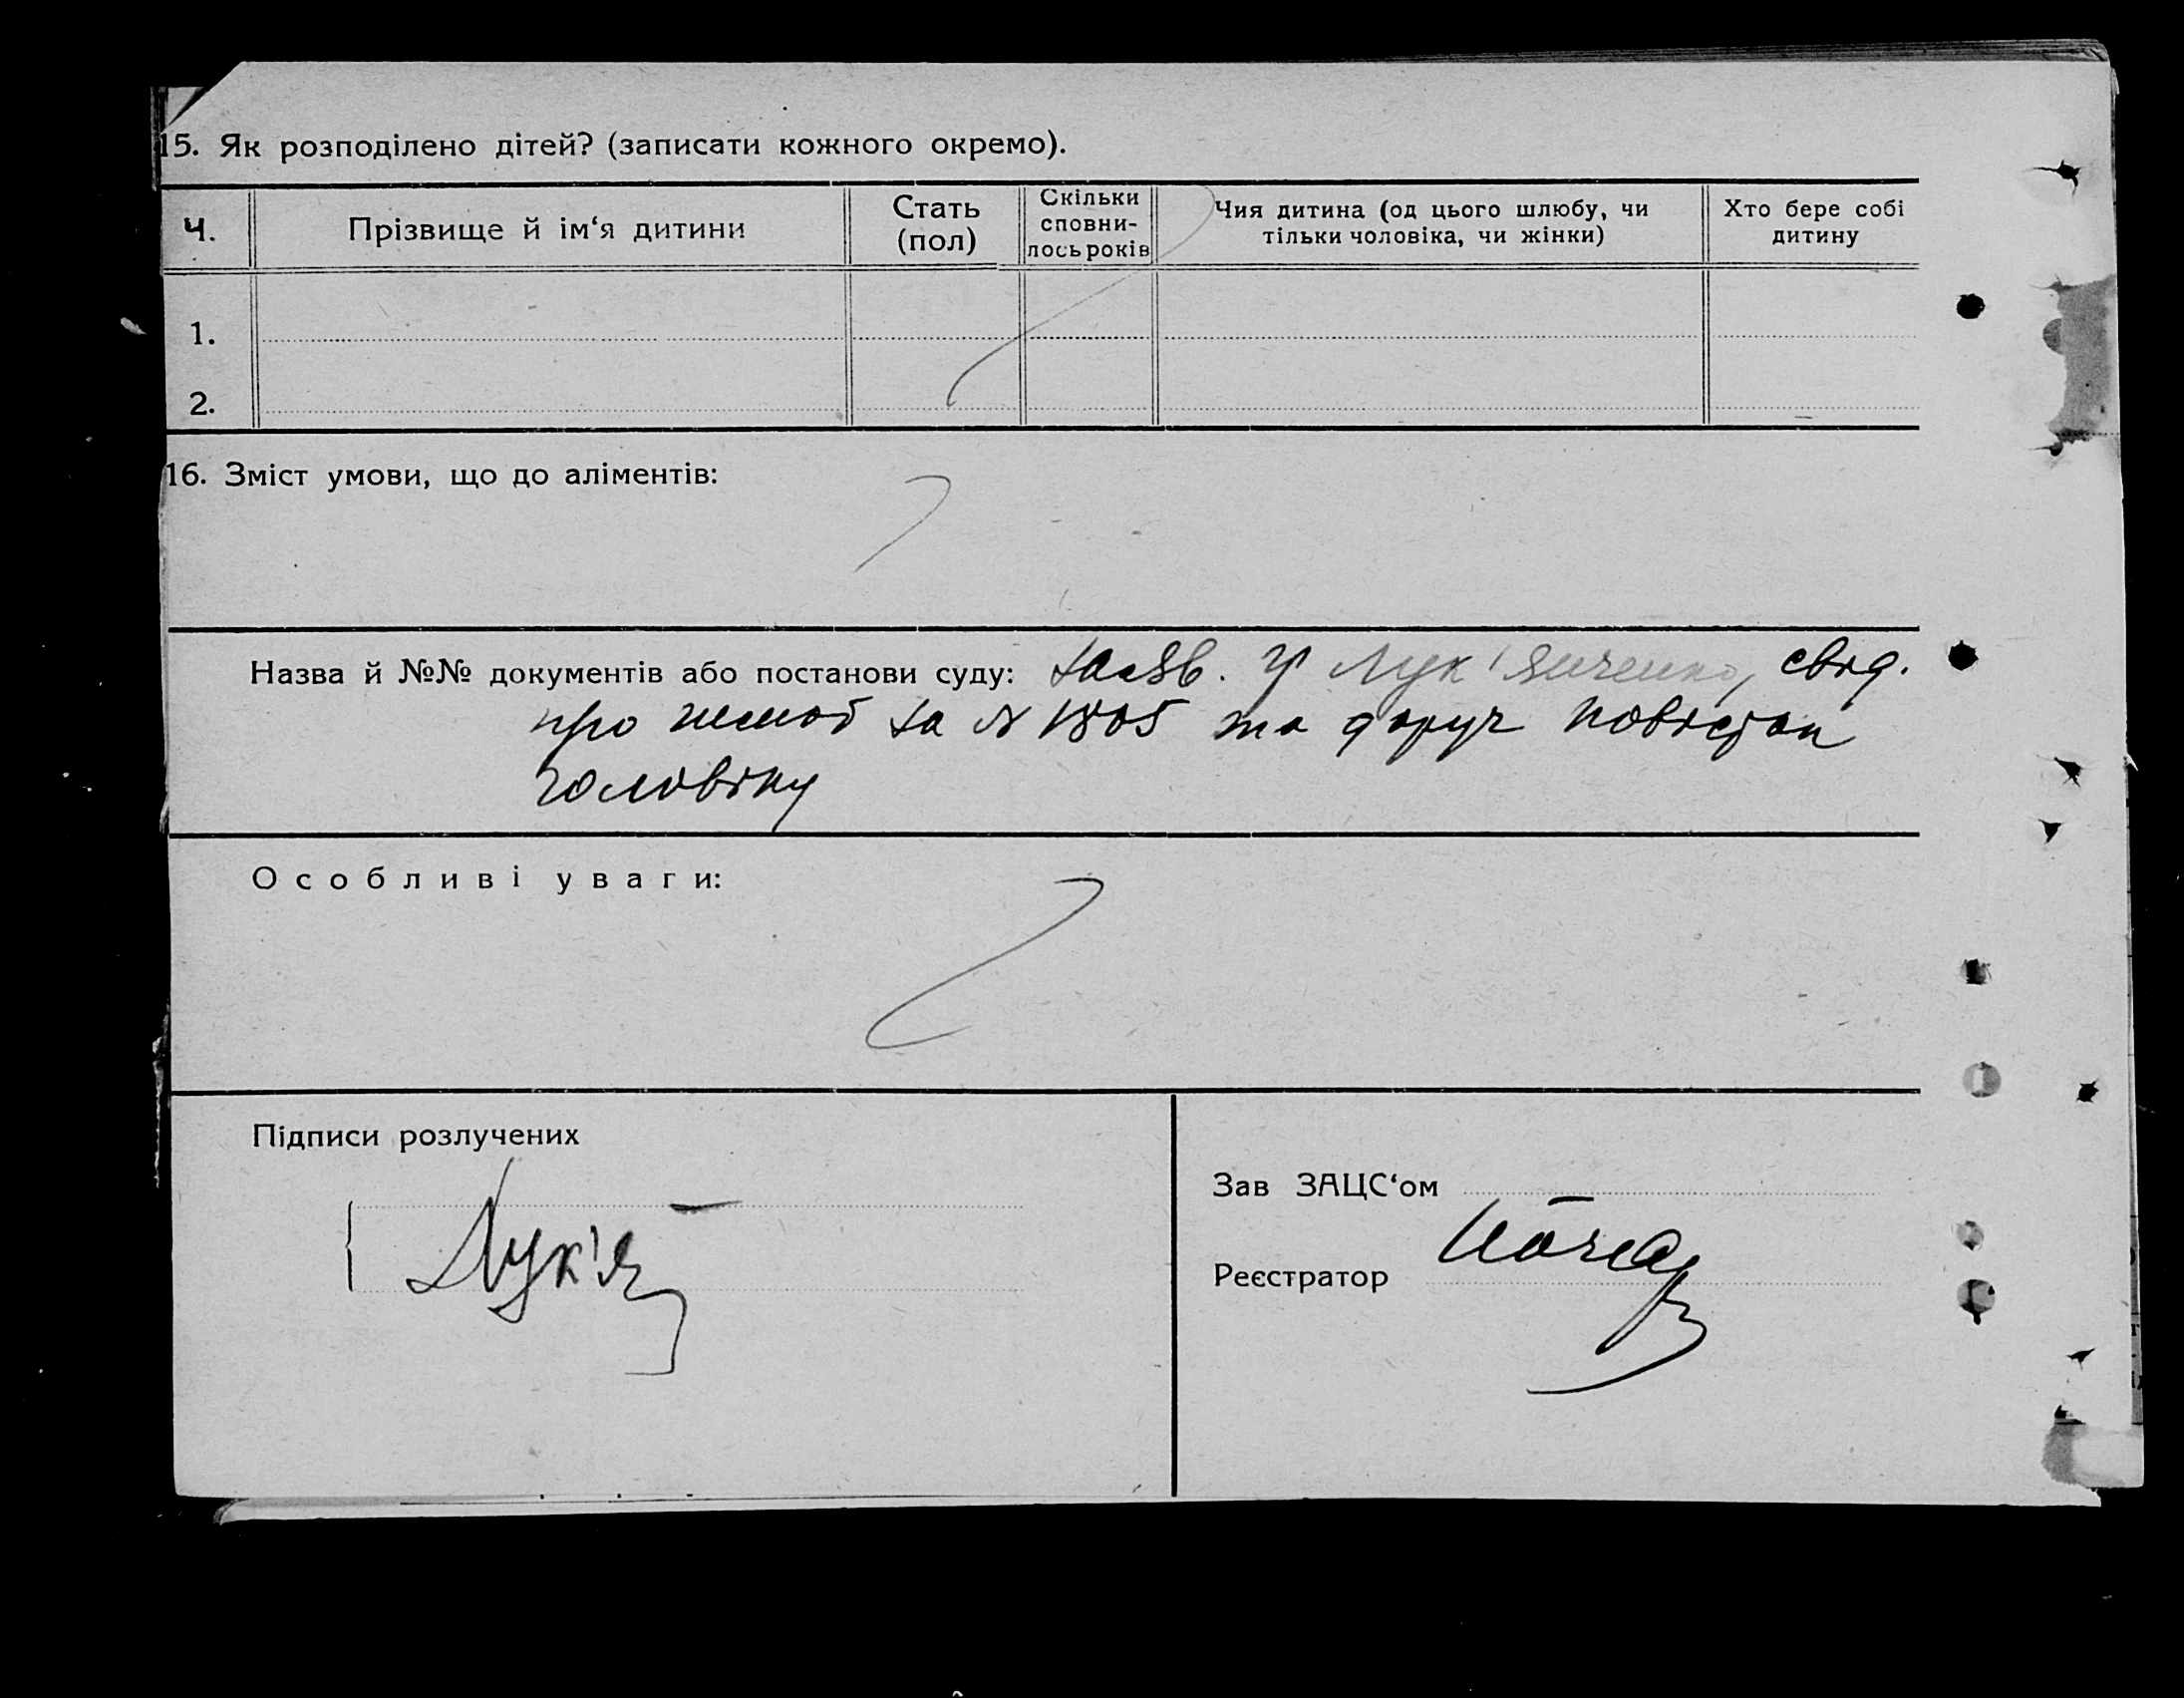 15. Як розподілено дітей? (записати кожного окремо).
Ч. Прізвище й ім‘я дитини Стать (пол) Скільки сповни-лось років Чия дитина (од цього шлюбу, чи тільки чоловіка, чи жінки) Хто бере собі дитину
1.
2.
16. Зміст умови, що до аліментів:
Назва й №№ документів або постанови суду: заяв. гр Лук'янченко, свід.
про шлюб за № 1805 та доруч повістки
чоловіку
Особливі уваги:
Підписи розлучених
Лук'я
Зав ЗАЦС‘ом
Реєстратор